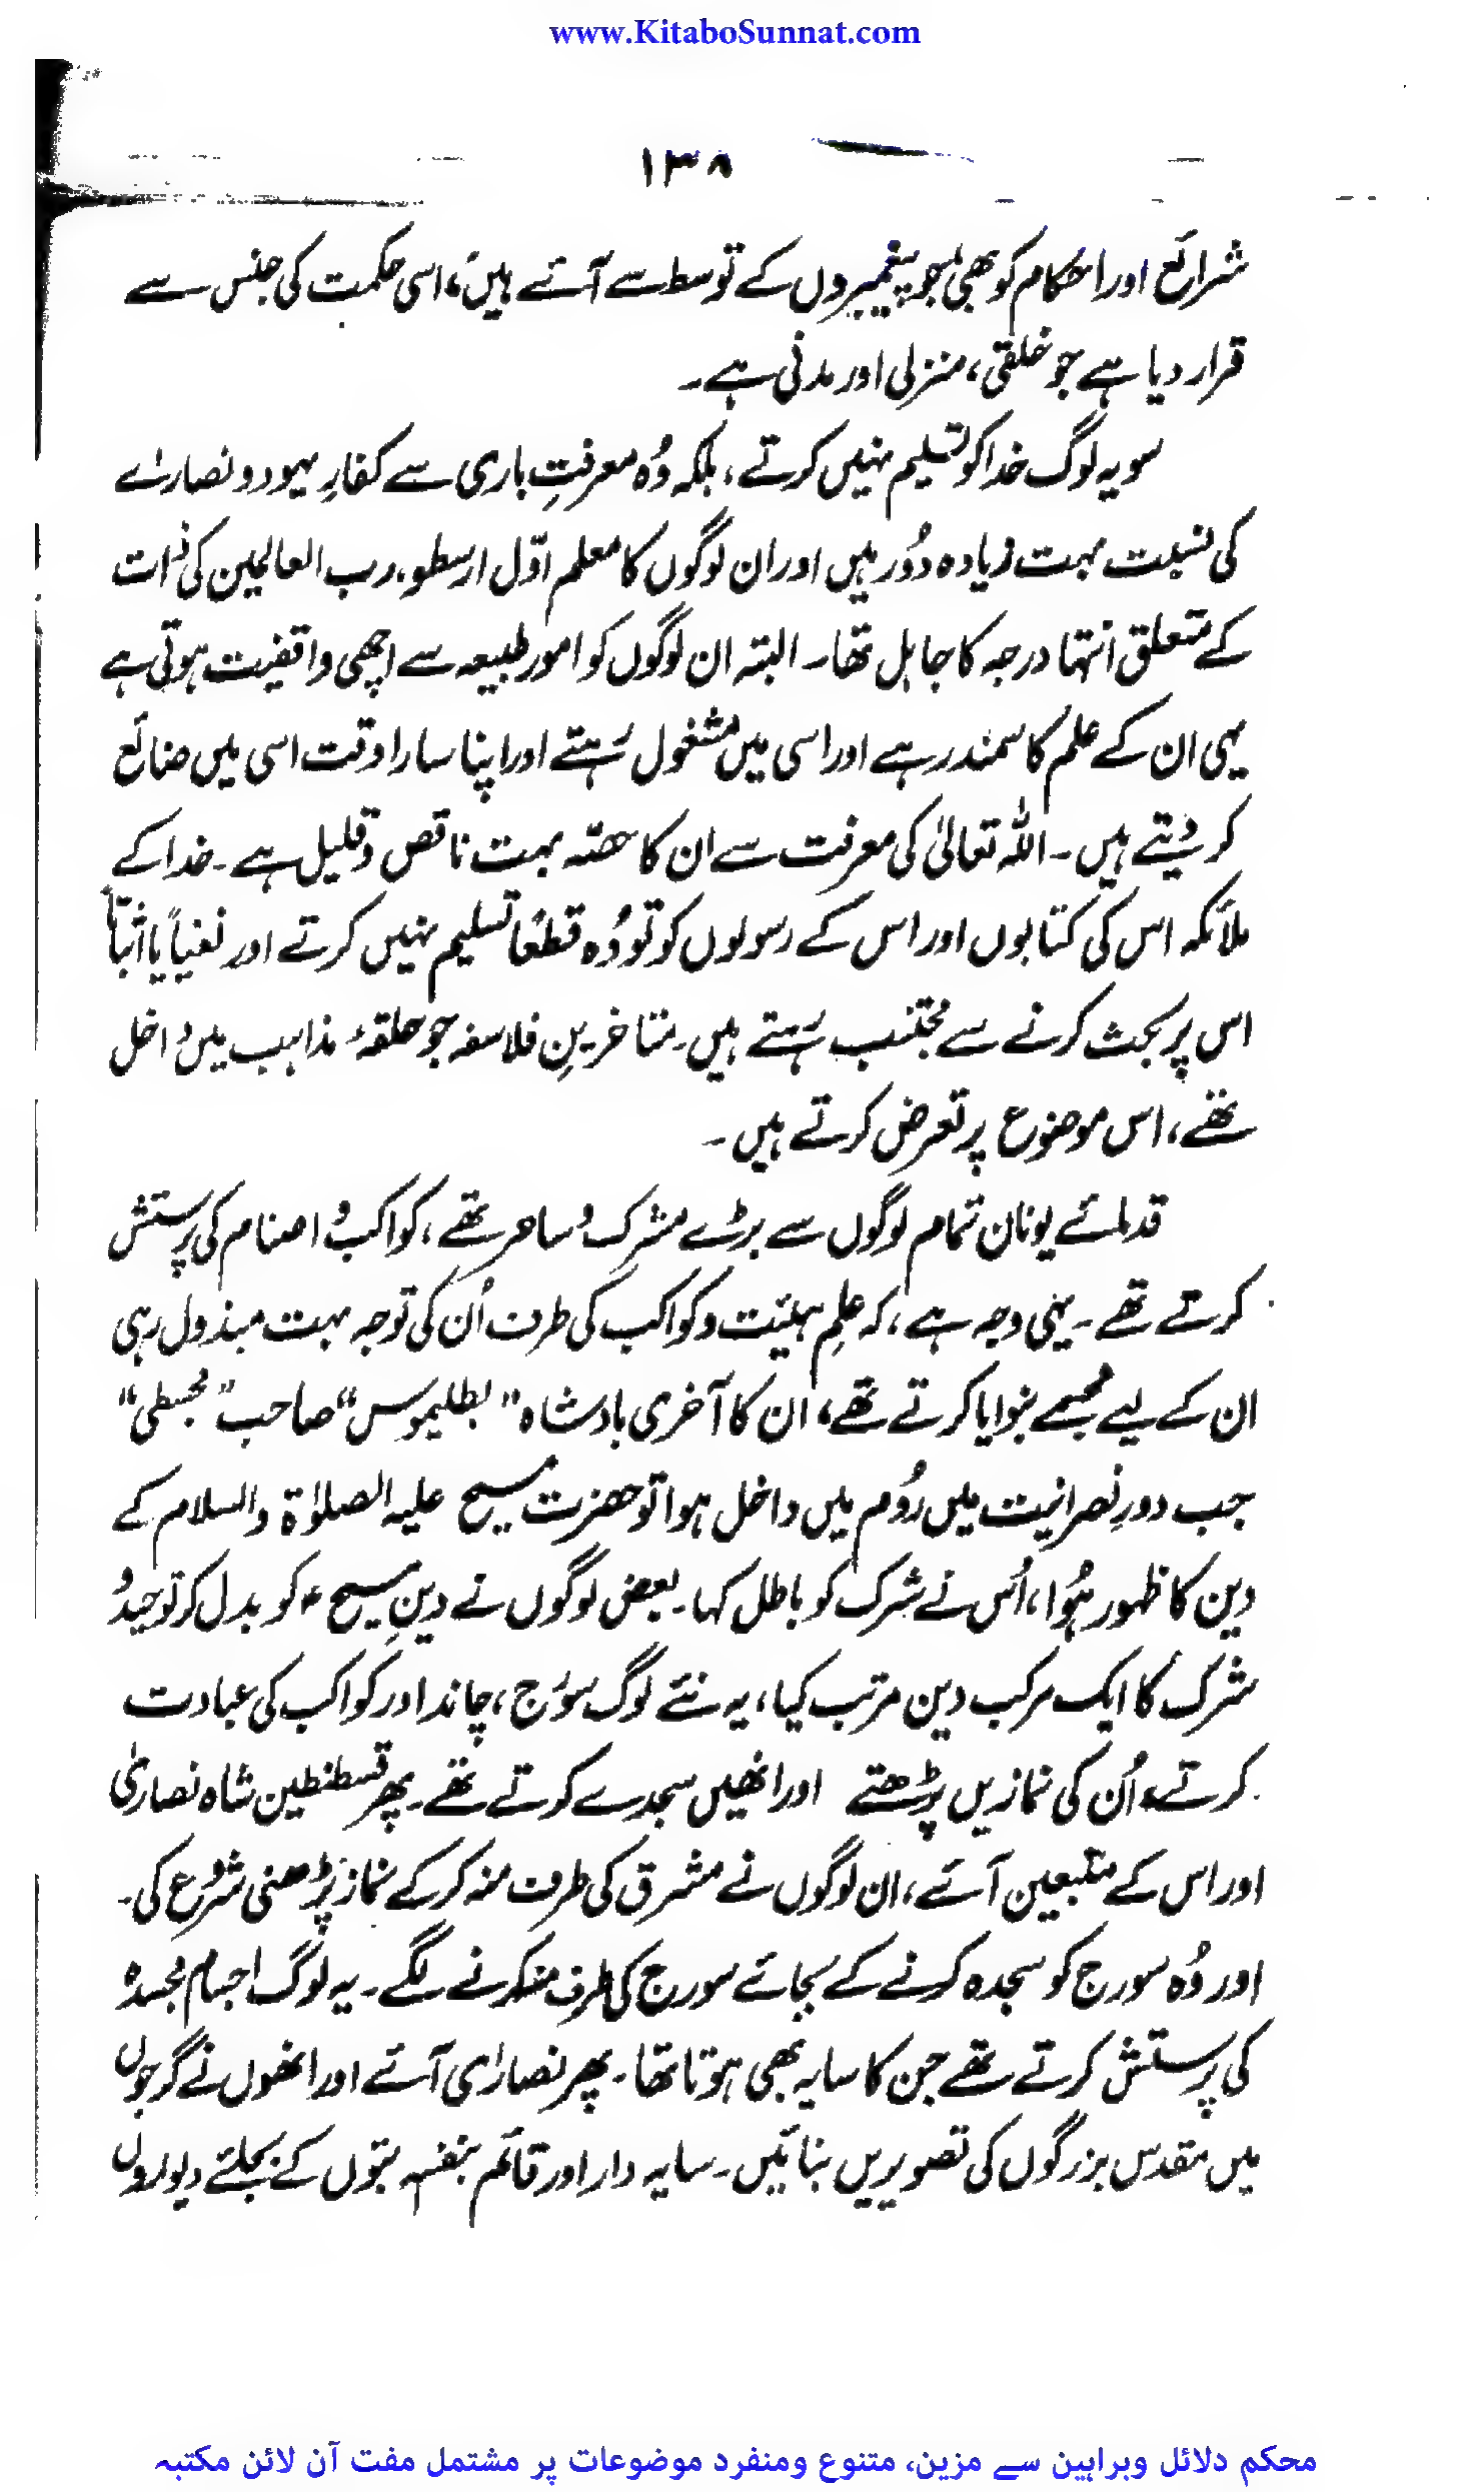 www.KitaboSunnat.com
۱۳۸
شرائع اور احکام کو بھی جو پیغمبروں کے توسط سے آئے ہیں، اسی حکمت کی جنس سے
قرار دیا ہے جو خلقی، منزلی اور مدنی ہے۔
سو یہ لوگ خدا کو تسلیم نہیں کرتے، بلکہ وُہ معرفتِ باری سے کفارِ یہود و نصاریٰ
کی نسبت بہت زیادہ دُور ہیں اور ان لوگوں کا معلم اوّل ارسطو، رب العالمین کی ذات
کے متعلق انتہا درجہ کا جاہل تھا۔ البتہ ان لوگوں کو امور طبیعہ سے اچھی واقفیت ہوتی ہے
یہی ان کے علم کا سمندر ہے اور اسی میں مشغول رہتے اور اپنا سارا وقت اسی میں ضائع
کر دیتے ہیں۔ اللہ تعالیٰ کی معرفت سے ان کا حصّہ بہت ناقص و قلیل ہے۔ خدا کے
ملائکہ اس کی کتابوں اور اس کے رسولوں کو تو وُہ قطعًا تسلیم نہیں کرتے اور نفیاً یا اثباتاً
اس پر بحث کرنے سے مجتنب رہتے ہیں۔ متاخرینِ فلاسفہ جو حلقۂ مذاہب میں داخل
تھے، اس موضوع پر تعرض کرتے ہیں۔
قدمائے یونان تمام لوگوں سے بڑے مشرک و ساحر تھے، کواکب و اصنام کی پرستش
کرتے تھے۔ یہی وجہ ہے، کہ علمِ ہیئت و کواکب کی طرف اُن کی توجہ بہت مبذول رہی
ان کے لیے مجسمے بنوایا کرتے تھے، ان کا آخری بادشاہ "بطلیموس" صاحب "مجسطی"
جب دورِ نصرانیت میں رُوم میں داخل ہوا تو حضرت مسیح علیہ الصلوٰۃ والسلام کے
دین کا ظہور ہُوا، اُس نے شرک کو باطل کہا۔ بعض لوگوں نے دینِ مسیحؑ کو بدل کر توحید و
شرک کا ایک مرکب دین مرتب کیا، یہ نئے لوگ سورج، چاند اور کواکب کی عبادت
کرتے، اُن کی نمازیں پڑھتے اور انھیں سجدے کرتے تھے۔ پھر قسطنطین شاہ نصاریٰ
اور اس کے متبعین آئے، ان لوگوں نے مشرق کی طرف منہ کر کے نماز پڑھنی شروع کی۔
اور وُہ سورج کو سجدہ کرنے کے بجائے سورج کی طرف منہ کرنے لگے۔ یہ لوگ اجسام مجسدہ
کی پرستش کرتے تھے جن کا سایہ بھی ہوتا تھا۔ پھر نصاریٰ آئے اور انھوں نے گرجوں
میں مقدس بزرگوں کی تصویریں بنائیں۔ سایہ دار اور قائم بنفسہٖ بتوں کے بجائے دیواروں
محکم دلائل وبراہین سے مزین، متنوع ومنفرد موضوعات پر مشتمل مفت آن لائن مکتبہ